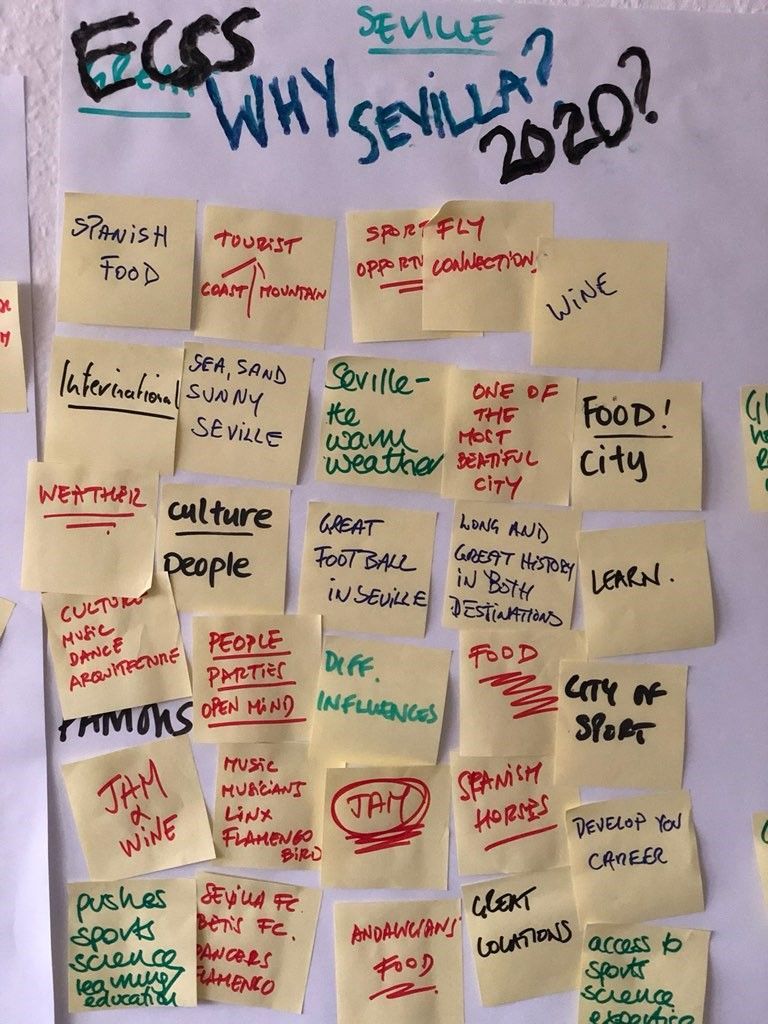 SEVILLE
ECSS
WHY SEVILLA?
2020?
SPANISH
FOOD
TOURIST
COAST MOUNTAIN
SPORT
OPPORT
FLY
CONNECTION
WINE
International
SEA, SAND
SUNNY
SEVILLE
Seville-
the
warm
weather
ONE OF
THE
MOST
BEATIFUL
CITY
FOOD!
City
WEATHER
Culture
People
GREAT
FOOTBALL
IN SEVILLE
LONG AND
GREAT HISTORY
IN BOTH
DESTINATIONS
LEARN.
CULTURE
MUSIC
DANCE
ARQUITECTURE
PEOPLE
PARTIES
OPEN MIND
DIFF.
INFLUENCES
FOOD
CITY OF
SPORT
FAMOUS
JAM
& WINE
MUSIC
MUSICIANS
LINX
FLAMENGO
BIRD
JAM
SPANISH
HORSES
DEVELOP YOU
CAREER
pushes
sports
science
learning/
education
SEVILLA FC.
BETIS FC.
DANCERS
FLAMENCO
ANDALUCIANS
FOOD
GREAT
LOCATIONS
access to
sports
science
expertice